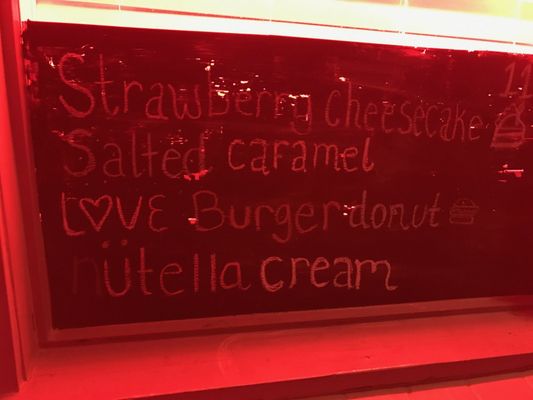 Strawberry cheesecake
Salted caramel
LOVE Burger donut
nütella cream